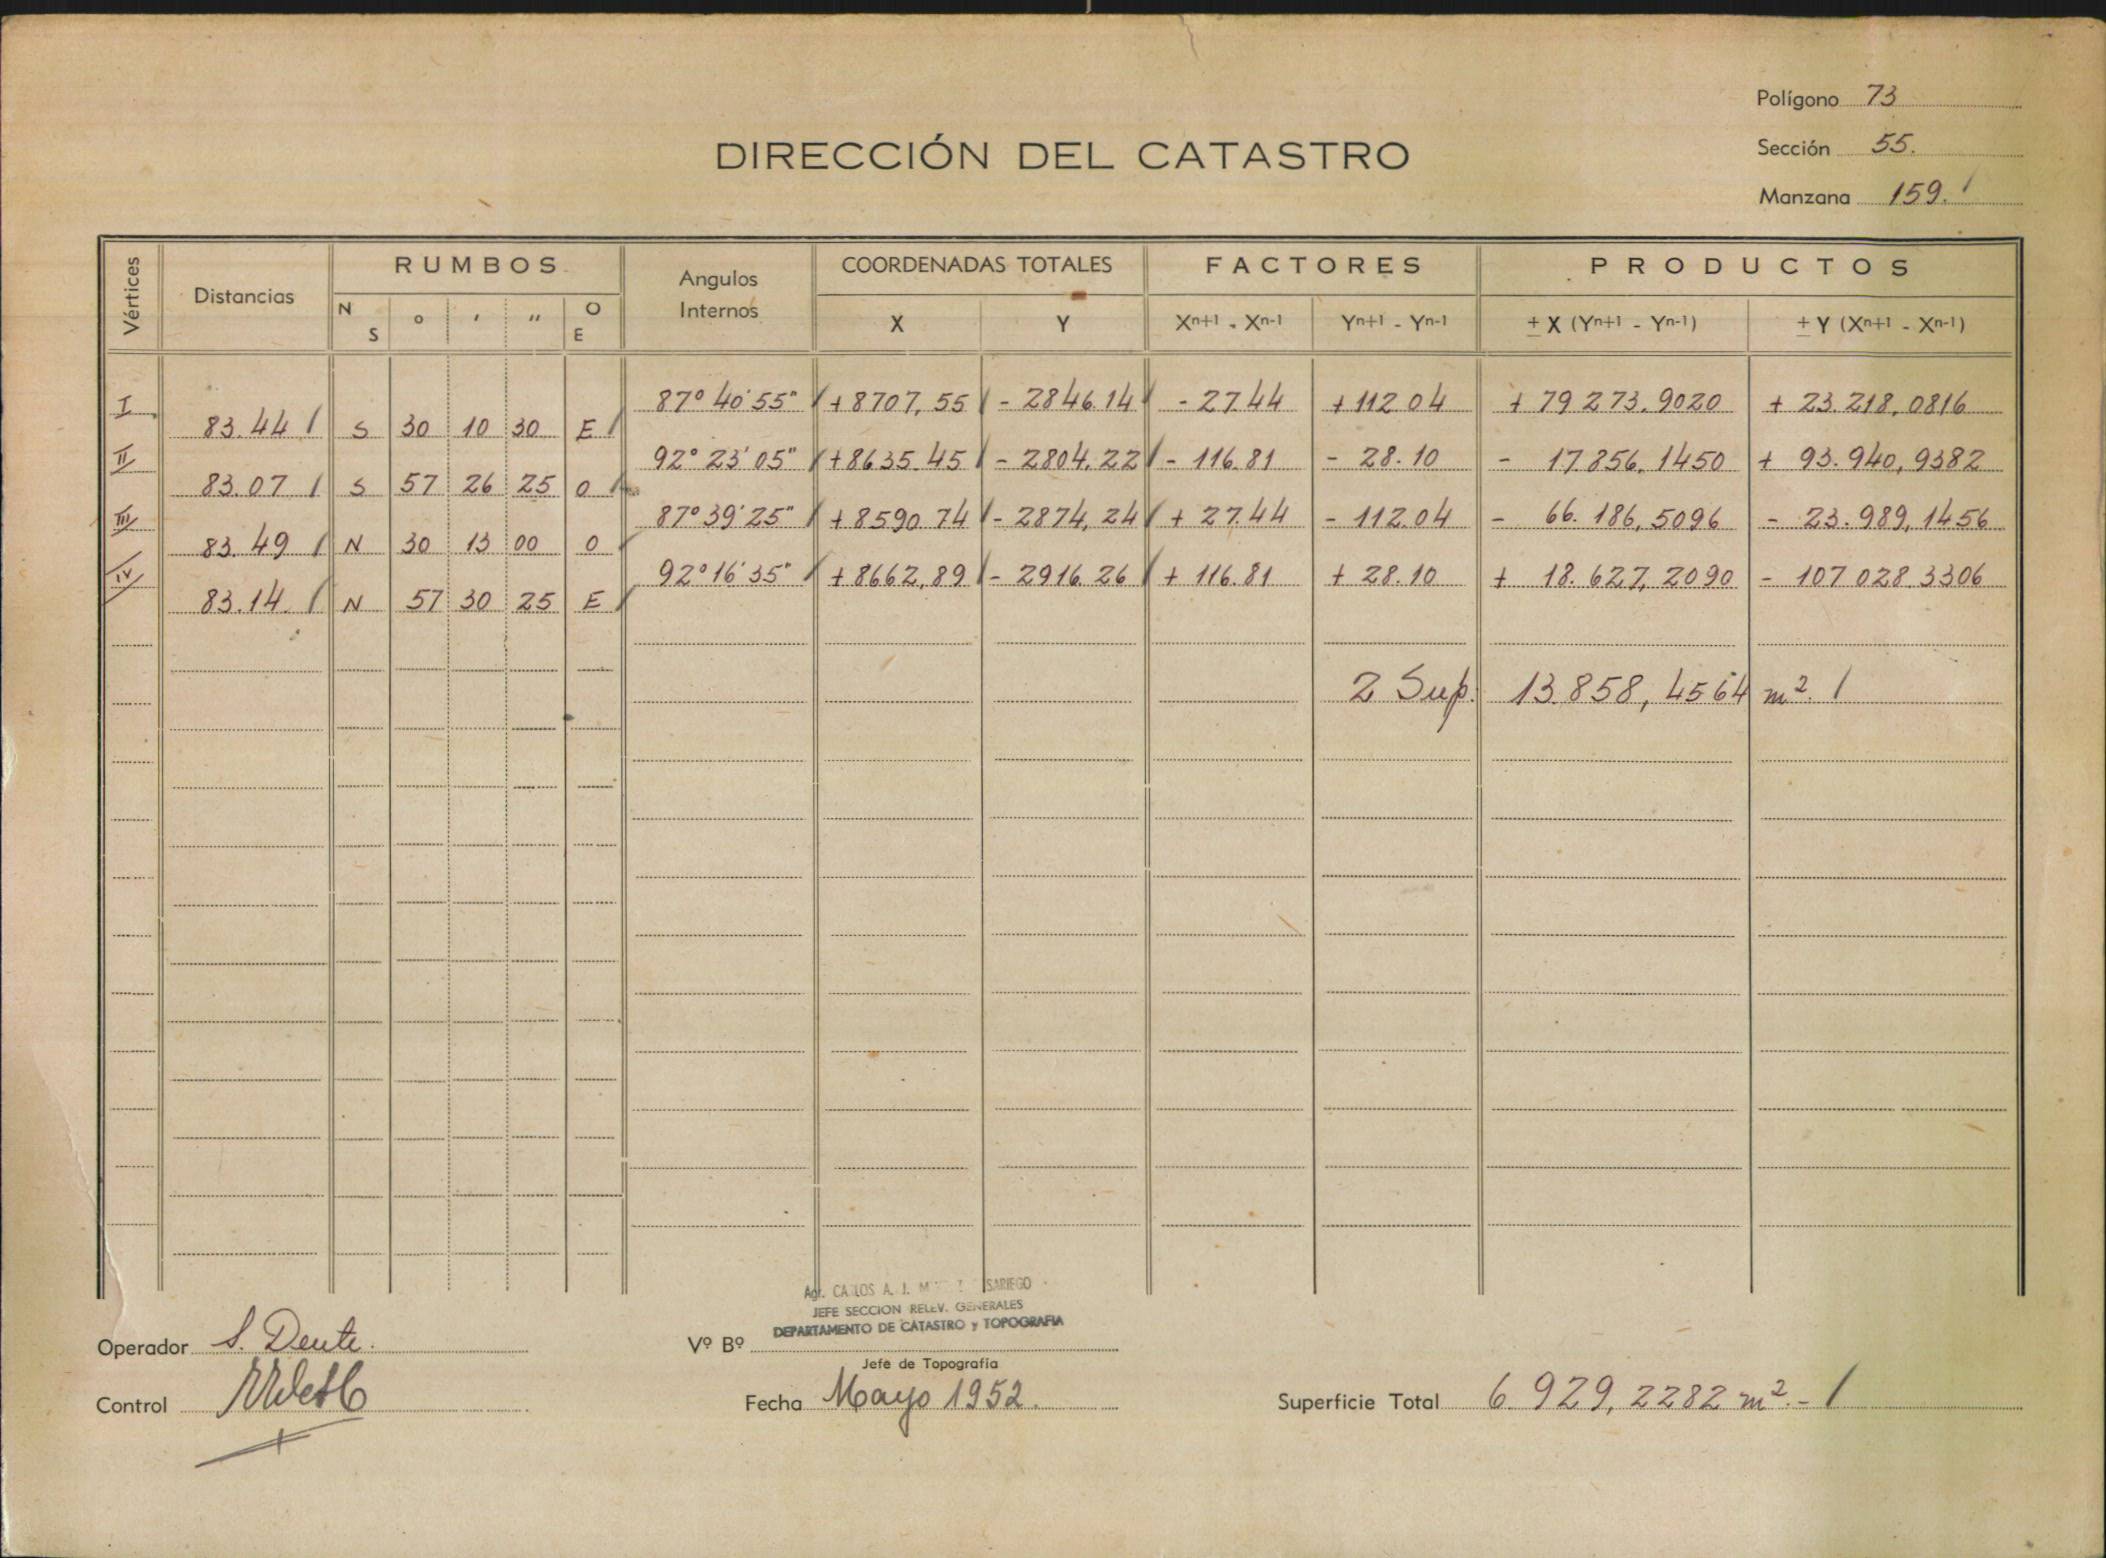 Polígono 73
DIRECCIÓN DEL CATASTRO
Sección 55.
Manzana 159.
Vértices Distancias RUMBOS Angulos Internos COORDENADAS TOTALES FACTORES PRODUCTOS
N S ° ' " O E X Y Xⁿ⁺¹ - Xⁿ⁻¹ Yⁿ⁺¹ - Yⁿ⁻¹ ± X (Yⁿ⁺¹ - Yⁿ⁻¹) ± Y (Xⁿ⁺¹ - Xⁿ⁻¹)
I 87° 40' 55" +8707,55 - 2846.14 - 27.44 +112.04 + 79 273.9020 + 23.218,0816
83.44 S 30 10 30 E
II 92° 23' 05" +8635.45 - 2804.22 - 116.81 - 28.10 - 17.856,1450 + 93.940,9382
83.07 S 57 26 25 O
III 87° 39' 25" +8590.74 - 2874,24 + 27.44 - 112.04 - 66.186,5096 - 23.989,1456
83.49 N 30 13 00 O
IV 92° 16' 35" +8662,89 - 2916.26 + 116.81 + 28.10 + 18.627,2090 - 107 028.3306
83.14. N 57 30 25 E
2 Sup. 13.858,4564 m².
Agr. CARLOS A. J.
JEFE SECCION RELEV. GENERALES
DEPARTAMENTO DE CATASTRO y TOPOGRAFIA
Operador S. Dente.
Vº Bº
Jefe de Topografía
Control
Fecha Mayo 1952.
Superficie Total 6.929,2282 m².-